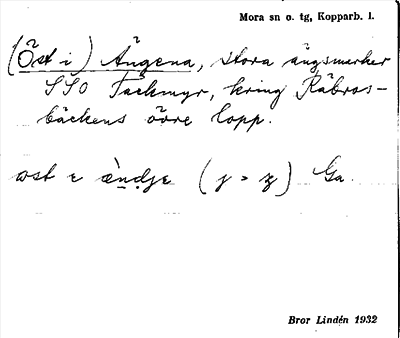 Mora sn o. tg, Kopparb. l.
(Öst i) Ängena, stora ängsmarker
SSO Tackmyr, kring Råbros-
bäckens övre lopp.
ɷst ɛ æ̀ndjɛ ( j = ʒ ) Ga.
Bror Lindén 1932